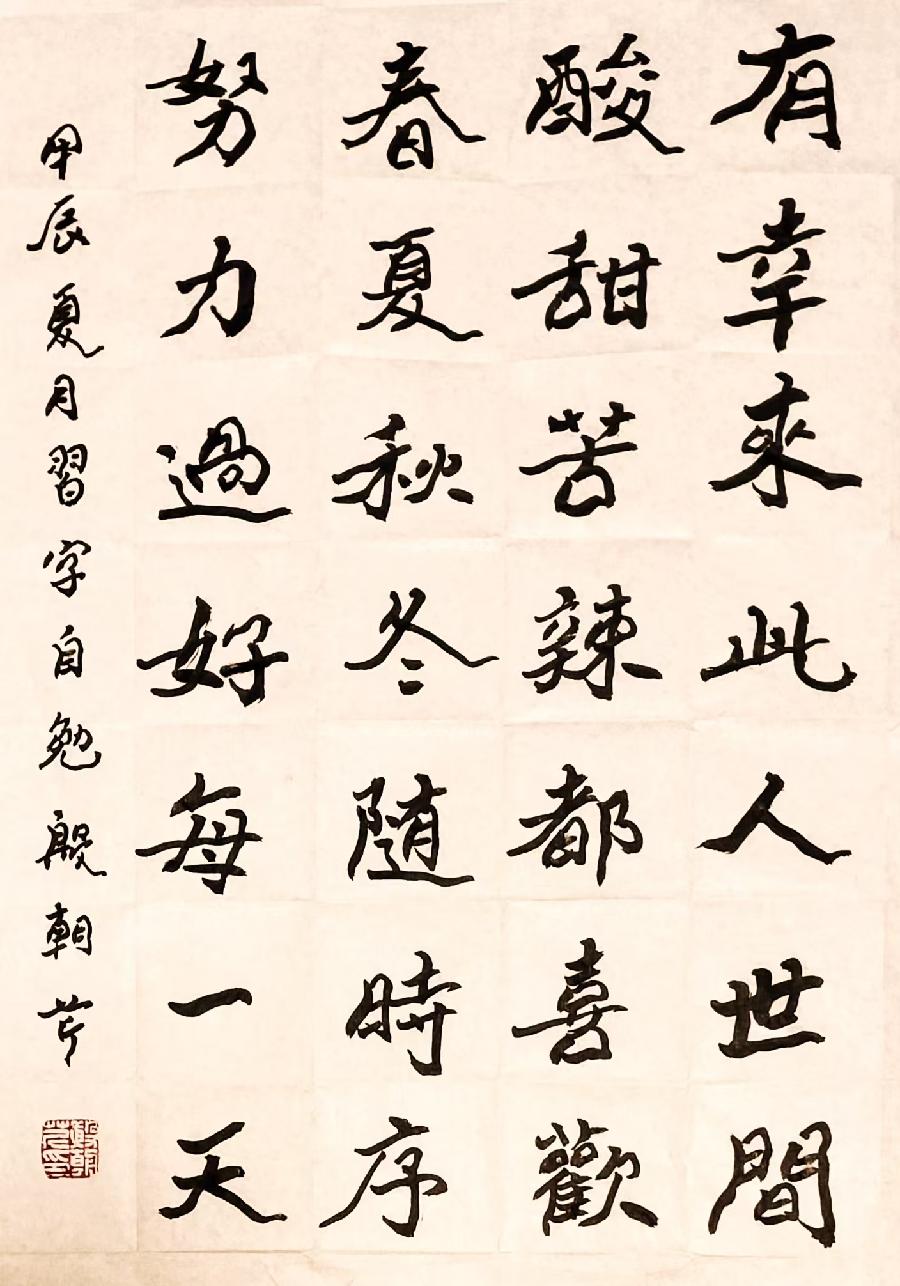 有幸來此人世間
酸甜苦辣都喜歡
春夏秋冬隨時序
努力過好每一天
甲辰夏月習字自勉殷朝芹